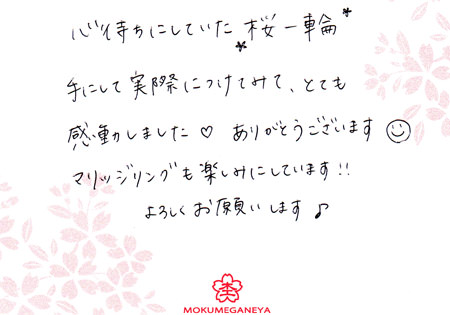 心待ちにしていた*桜一輪*
手にして実際につけてみて、とても
感動しました♡ ありがとうございます☺
マリッジリングも楽しみにしています!!
よろしくお願いします♪
MOKUMEGANEYA